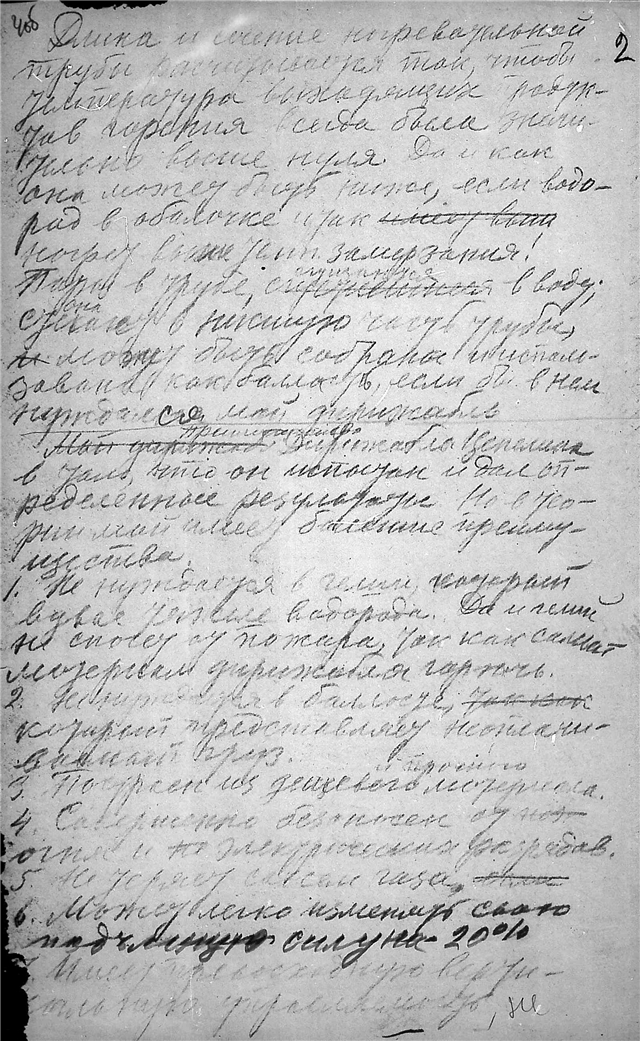 2
Длина и сечение нагревательной
трубы расчитывается так, чтобы
температура выходящих продук-
тов горения всегда была значи-
тельно выше нуля. Да и как
она может быть ниже, если водо-
род в оболочке и так имеет выш
нагрет выше темп. замерзания!
Пары в трубе, сгущаются в воду;
она
стекает в низшую часть трубы,
и может быть собрана и исполь-
зована как балласт, если бы в нем
нуждался мой дирижабль
Мой дирижабль Преимущество Дирижабля Цепелина
в том, что он испытан и дал оп-
ределенные результаты. Но в тео-
рии мой имеет большие преиму-
щества
1. Не нуждается в гелии, который
вдвое тяжелее водорода. Да и гелий
не спосет от пожара, так как самый
материал дирижабля горюч.
2. Не нуждается в балласте, так как
который представляет неоплачи-
ваемый груз.
3. Построен из дешевого и прочного материала.
4. Совершенно безопасен от
огня и по электрических разрядов.
5. Не теряет совсем газа,
6. Может легко изменять свою
подъемную силу на 20%
7. Имеет превосходную верти-
кальную управляемость, не